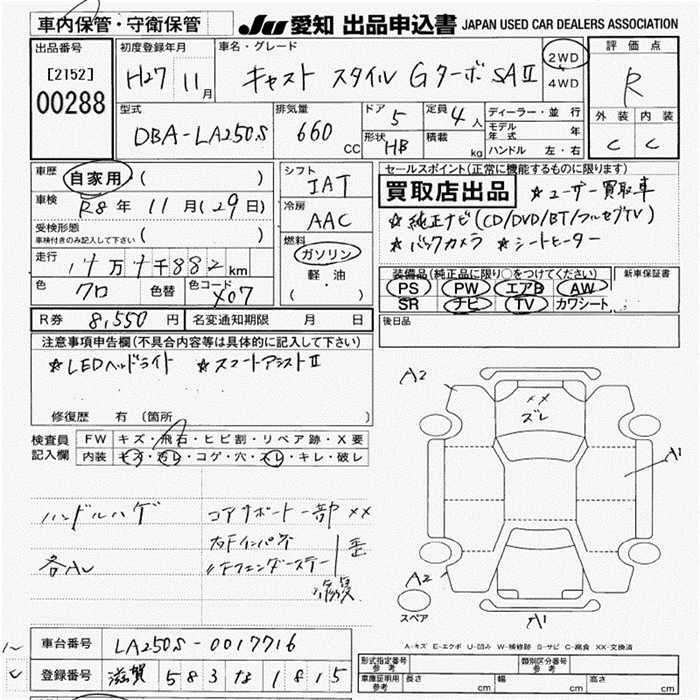 車内保管・守衛保管
JU 愛知 出品申込書 JAPAN USED CAR DEALERS ASSOCIATION
出品番号 初度登録年月 車名・グレード 評価点
[2152] H27 11月 キャスト スタイル Gターボ SAⅡ 2WD R
00288 4WD
型式 排気量 ドア 5 定員 4人 ディーラー・並行 外装 内装
DBA-LA250S 660 CC 形状 HB 積載 kg モデル年式 年 C C
ハンドル 左・右
車歴 自家用 ( ) シフト セールスポイント(正常に機能するものに限ります)
IAT 買取店出品 ☆ユーザー買取車
車検 R8年 11月(29日) 冷房 ☆純正ナビ(CD/DVD/BT/フルセグTV)
受検形態 AAC ☆バックカメラ ☆シートヒーター
車検付きのみ記入して下さい ( )
走行 燃料 ガソリン 装備品(純正品に限り○をつけてください) 新車保証書
十万千882km 軽油 PS PW エアB AW
色 クロ 色替 色コード X07 ( ) SR ナビ TV カワシート
R券 8,550円 名変通知期限 月 日 後日品
注意事項申告欄(不具合内容等は具体的に記入して下さい)
☆LEDヘッドライト ☆スマートアシストⅡ
A2
××
ズレ
修復歴 有 (箇所 )
検査員 FW キズ・飛石・ヒビ割・リペア跡・X要 A1
記入欄 内装 キズ・汚レ・コゲ・穴・スレ・キレ・破レ
ハンドルハゲ コアサポート一部 ××
右Fインパネ 歪
各AU 〃Fフェンダーステー
A2
スペア A1
A-キズ E-エクボ U-凹み W-補修跡 S-サビ C-腐食 XX-交換済
車台番号 LA250S-0017716 型式指定番号 参考 類別区分番号 参考
登録番号 滋賀 583 な 1815 車庫証明用 参考 長さ cm 幅 cm 高さ cm